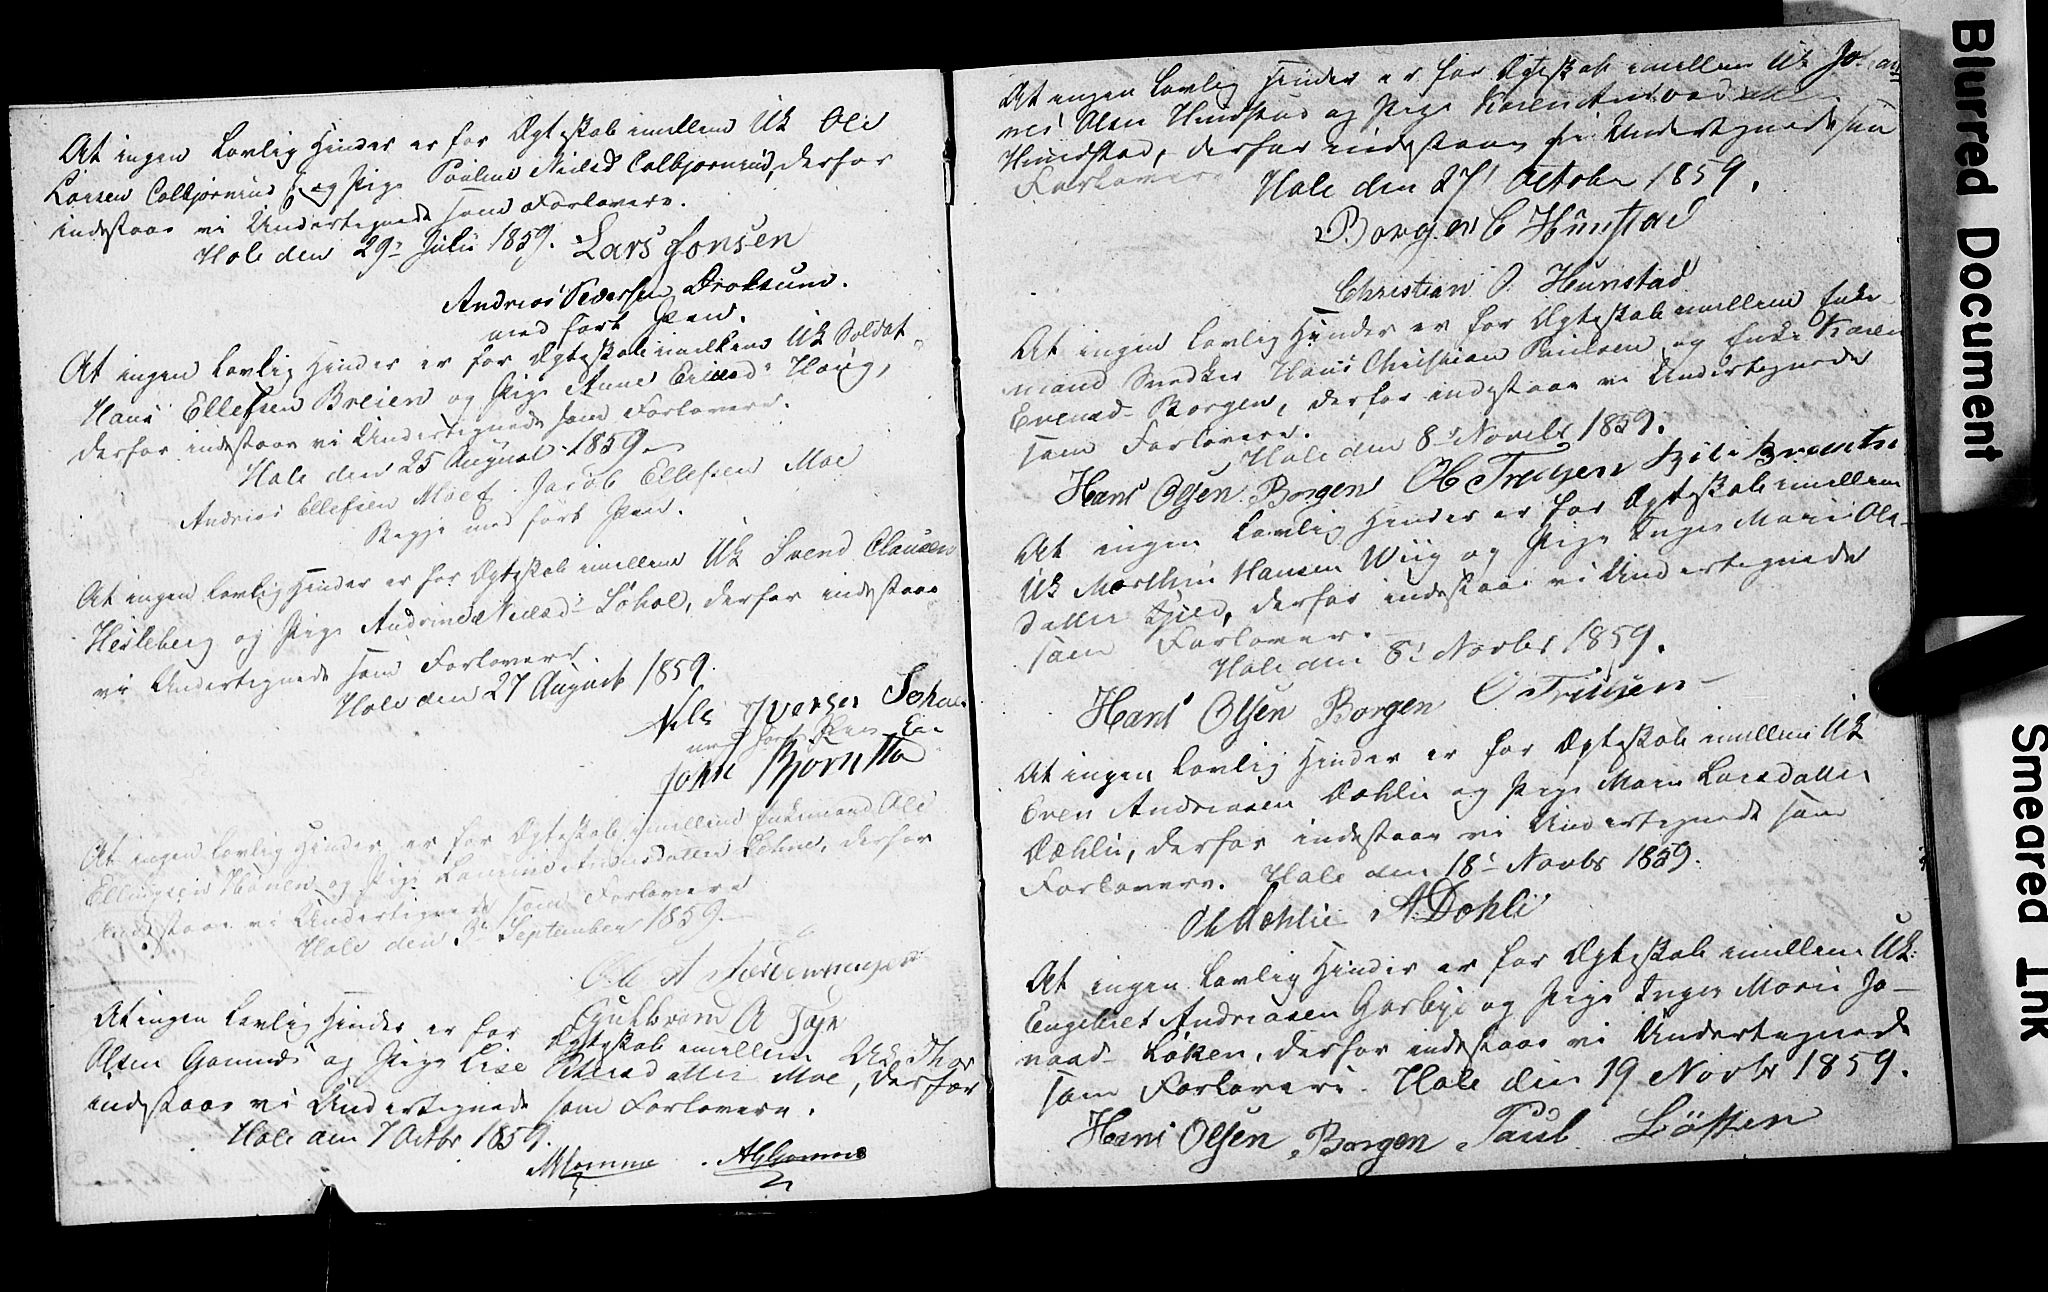 At ingen lovlig Hinder er for Ægteskab imellem Uk Ole
Larsen Colbjørnrud og Pige Pauline Nielsd Colbjørnrud, derfor
indestaar vi Undertegnede som Forlovere.
Hole den 29de Julii 1859. Lars Jonsen
Andreas Pedersen Drolsum.
med ført Pen.
At ingen lovlig Hinder er for Ægteskab imellem Uk Soldat
Hans Ellefsen Breien og Pige Anne Ericsd. Haug,
derfor indestaar vi Undertegnede som Forlovere.
Hole den 25 August 1859
Andreas Ellefsen Moe Jacob Ellefsen Moe
Begge med ført Pen.
At ingen lovlig Hinder er for Ægteskab imellem Uk Svend Clausen
Hesleberg og Pige Andrine Nielsd Søhol, derfor indestaar
vi Undertegnede som Forlovere.
Hole den 27 August 1859.
Nils Iversen Sohol
med ført Pen
John Bjørnstad
At ingen lovlig Hinder er for Ægteskab imellem Enkemand Ole
Ellingsen Hønen og Pige Laurine Amundsdatter Løhne, derfor
indestaar vi Undertegnede som Forlovere
Hole den 3de September 1859.
Ole A
Gulbrand A
At ingen lovlig Hinder er for Ægteskab imellem Uk Thor
Olsen Gomnæs og Pige Lise Pedersdatter Moe, derfor
indestaar vi Undertegnede som Forlovere.
Hole den 7 Octbr 1859.
AGomnæs
At ingen lovlig Hinder er for Ægteskab imellem Uk Johan-
nes Olsen Hundstad og Pige Karen
Hundstad, derfor indestaar vi Undertegnede som
Forlovere
Hole den 27 October 1859.
Borger C Hunstad
Christian P. Hunstad
At ingen lovlig Hinder er for Ægteskab imellem Enke-
mand Snedker Hans Christian Paulsen og Enke Karen
Evensd. Borgen, derfor indestaar vi Undertegnede
som Forlovere.
Hole den 8de Novbr 1859.
Hans Olsen Borgen
At ingen lovlig Hinder er for Ægteskab imellem
Uk Marthin Hansen Wiig og Pige Inger Marie Ols-
datter Hjeld, derfor indestaar vi Undertegnede
som Forlovere.
Hole den 8de Novbr 1859.
Hans Olsen Borgen
At ingen lovlig Hinder er for Ægteskab imellem Uk
Even Andreasen Dæhlie og Pige Maren Larsdatter
Dæhlie, derfor indestaar vi Undertegnede som
Forlovere. Hole den 18de Novbr 1859.
Ol Dæhlie A. Dæhli
At ingen lovlig Hinder er for Ægteskab imellem Uk:
Engebret Andreasen Gorbye og Pige Inger Marie Jo-
nasd. Løken, derfor indestaar vi Undertegnede
som Forlovere. Hole den 19 Novbr 1859.
Hans Olsen Borgen Paul Løkken
Blurred Document
Smeared Ink